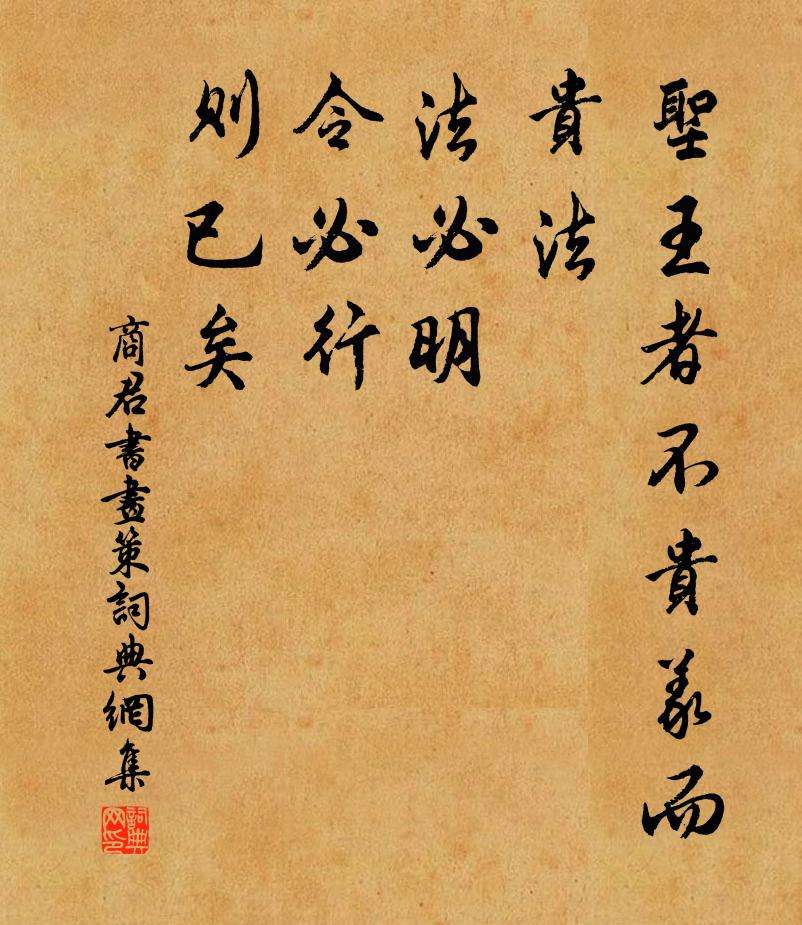 聖王者不貴義而
貴法
法必明
令必行
則已矣
商君書畫策詞典網集
詞典
网印